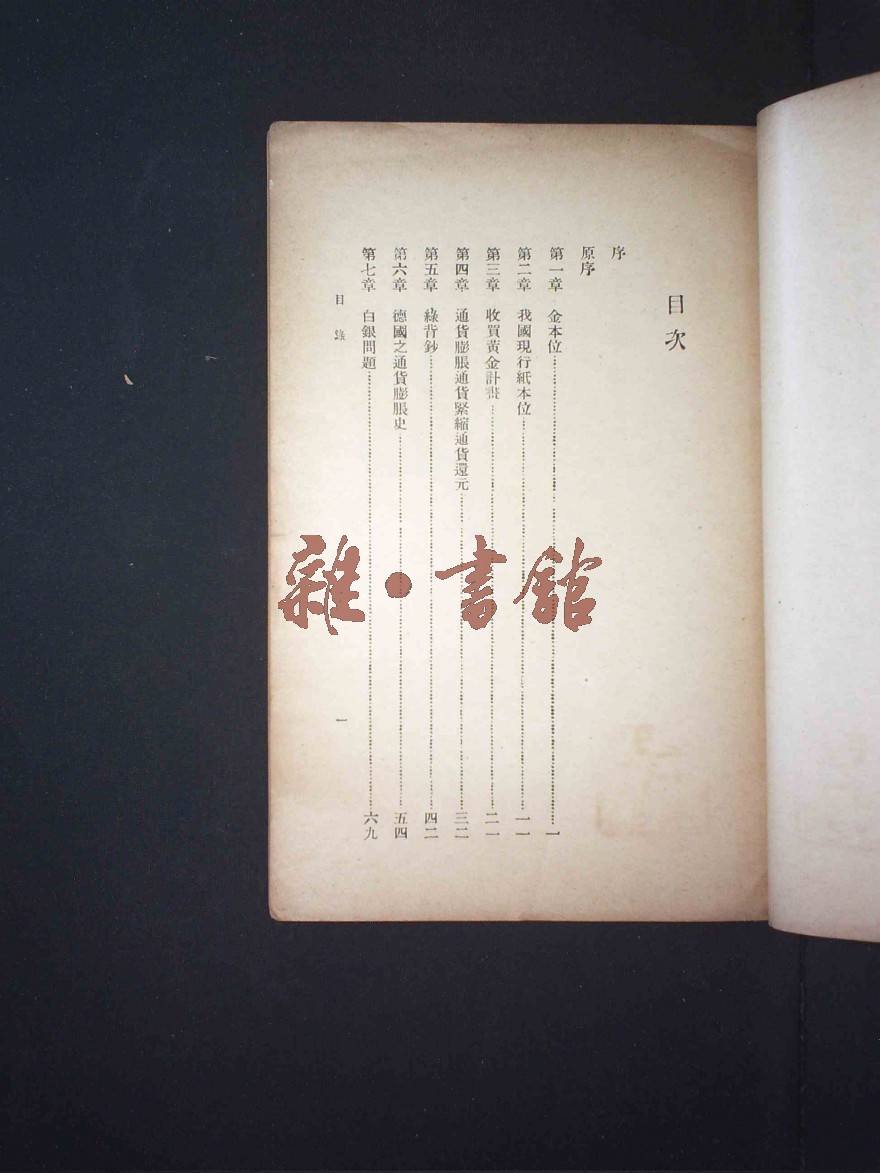 目次
序
原序
第一章 金本位……一
第二章 我國現行紙本位……一一
第三章 收買黃金計畫……二一
第四章 通貨膨脹通貨緊縮通貨還元……三二
第五章 綠背鈔……四二
第六章 德國之通貨膨脹史……五四
第七章 白銀問題……六九
目錄 一
雜·書館